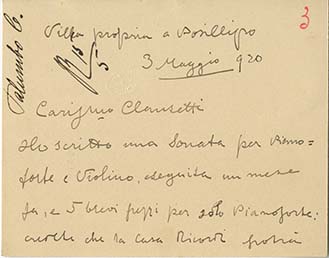 3
Palumbo C.
Villa propria a Posillipo
R 15/5
3 Maggio 920
Carissmo Clausetti
Ho scritto una Sonata per Piano-
forte e Violino, eseguita un mese
fa, e 5 brevi pezzi per solo Pianoforte:
credete che la Casa Ricordi potrà